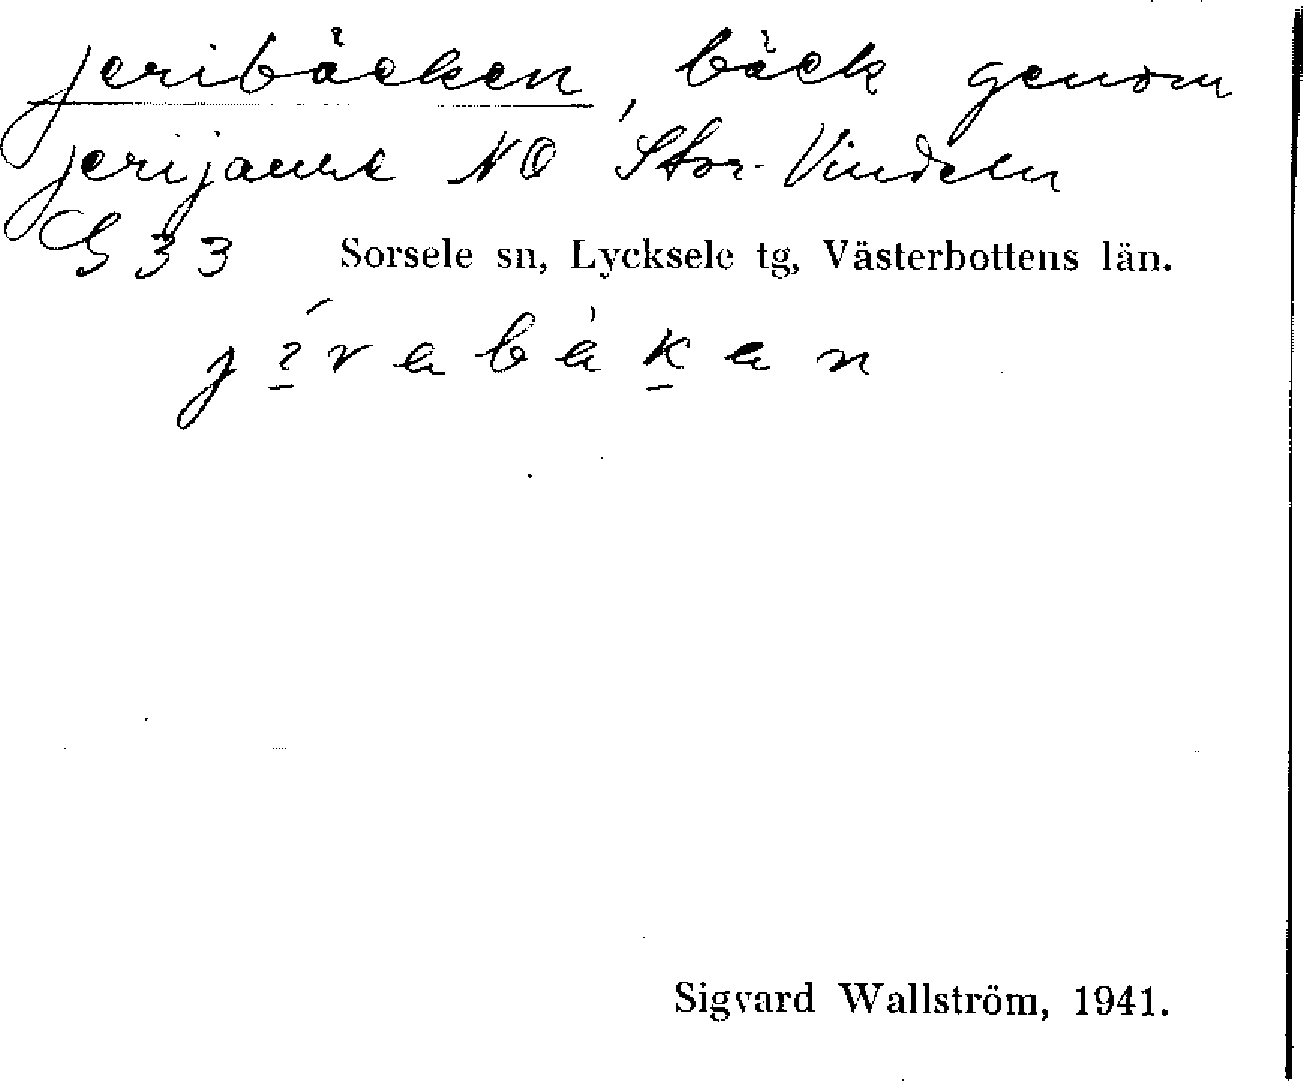 Jeribäcken, bäck genom
Jerijaure NO Stor-Vindeln
G 33 Sorsele sn, Lycksele tg, Västerbottens län.
Sigvard Wallström, 1941.